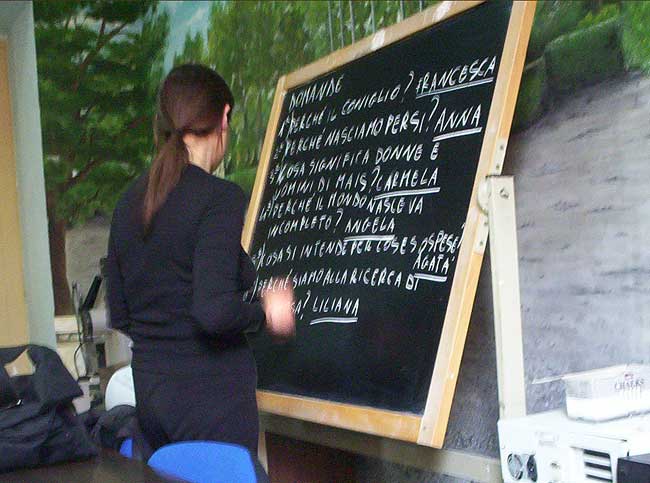 DOMANDE
1ª PERCHÉ IL CONIGLIO? FRANCESCA
2ª PERCHÉ NASCIAMO PERSI? ANNA
3ª COSA SIGNIFICA DONNE E
UOMINI DI MAIS? CARMELA
4ª PERCHÉ IL MONDO NASCEVA
INCOMPLETO? ANGELA
COSA SI INTENDE PER COSE SOSPESE?
AGATA
PERCHÉ SIAMO ALLA RICERCA DI
LILIANA
CHALKS